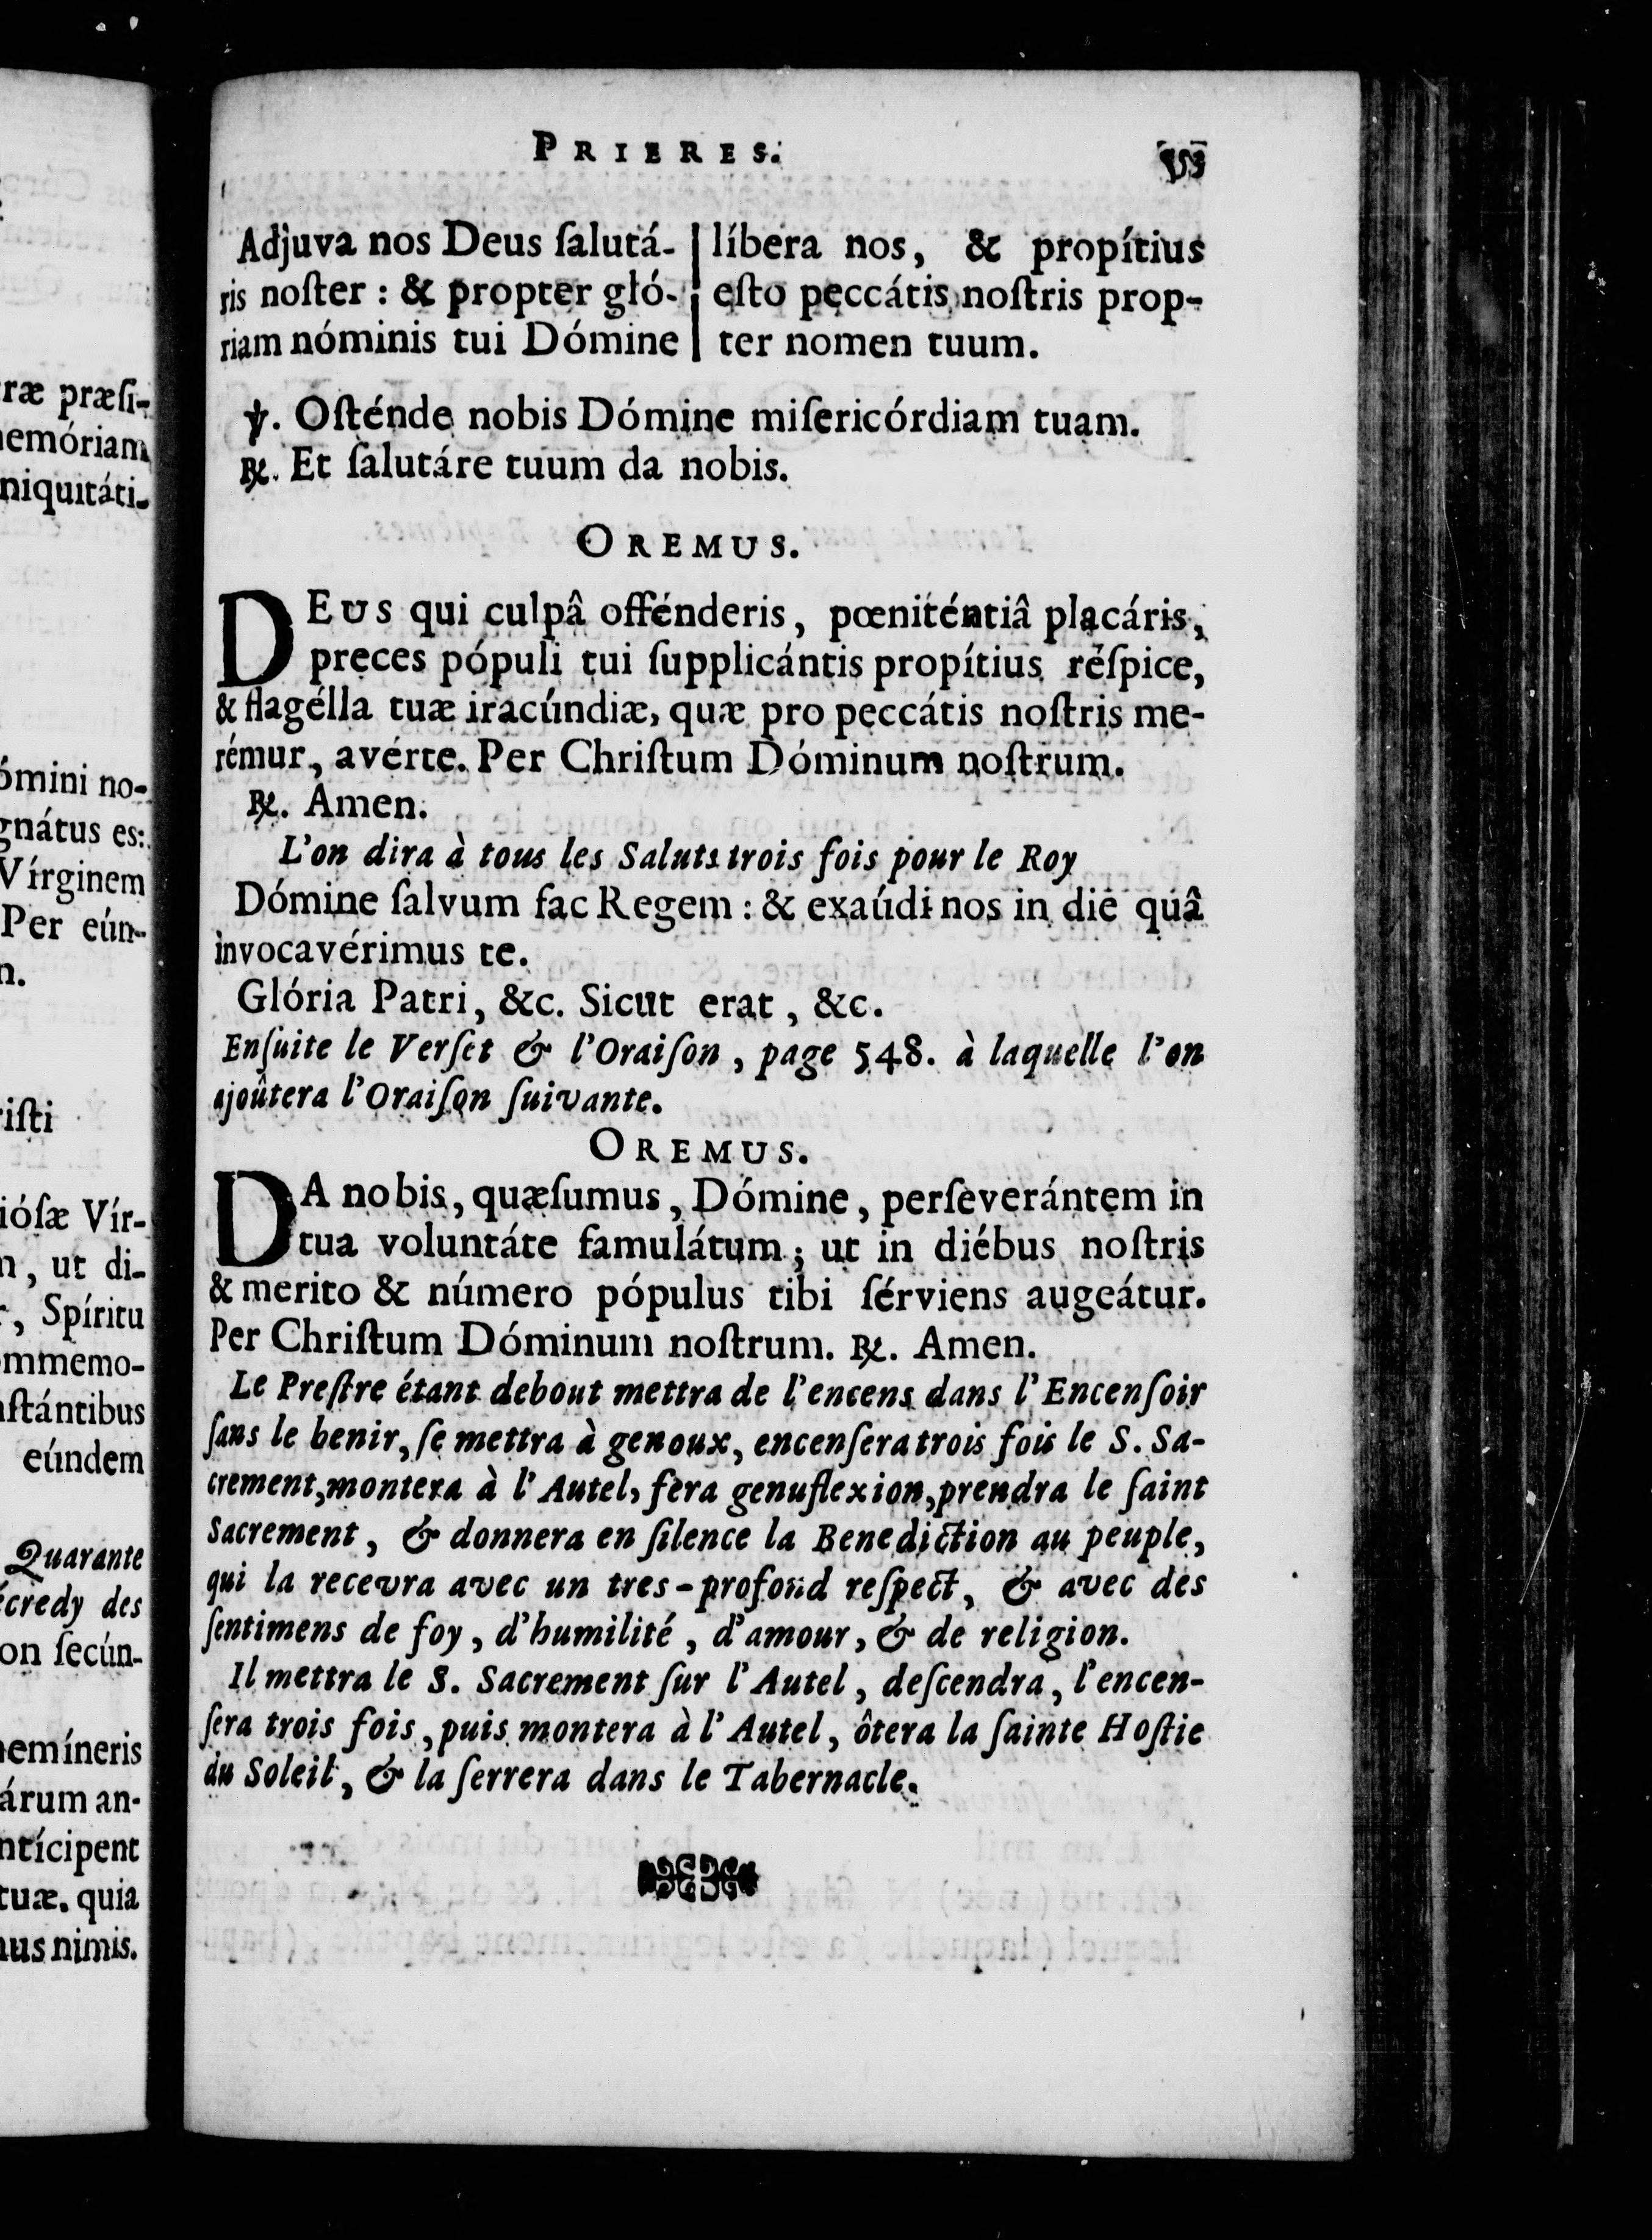 PRIERES.
Adjuva nos Deus salutá-
ris noster : & propter gló-
riam nóminis tui Dómine
líbera nos, & propítius
esto peccátis nostris prop-
ter nomen tuum.
℣. Osténde nobis Dómine misericórdiam tuam.
℟. Et salutáre tuum da nobis.
OREMUS.
DEUS qui culpâ offénderis, pœniténtiâ placáris,
preces pópuli tui supplicántis propítius réspice,
& flagélla tuæ iracúndiæ, quæ pro peccátis nostris me-
rémur, avérte. Per Christum Dóminum nostrum.
℟. Amen.
L'on dira à tous les Saluts trois fois pour le Roy
Dómine salvum fac Regem : & exaúdi nos in die quâ
invocavérimus te.
Glória Patri, &c. Sicut erat, &c.
Ensuite le Verset & l'Oraison, page 548. à laquelle l'on
ajoûtera l'Oraison suivante.
OREMUS.
DA nobis, quæsumus, Dómine, perseverántem in
tua voluntáte famulátum ; ut in diébus nostris
& merito & número pópulus tibi sérviens augeátur.
Per Christum Dóminum nostrum. ℟. Amen.
Le Prestre étant debout mettra de l'encens dans l'Encensoir
sans le benir, se mettra à genoux, encensera trois fois le S. Sa-
crement, montera à l'Autel, fera genuflexion, prendra le saint
Sacrement, & donnera en silence la Benediction au peuple,
qui la recevra avec un tres-profond respect, & avec des
sentimens de foy, d'humilité, d'amour, & de religion.
Il mettra le S. Sacrement sur l'Autel, descendra, l'encen-
sera trois fois, puis montera à l'Autel, ôtera la sainte Hostie
du Soleil, & la serrera dans le Tabernacle.